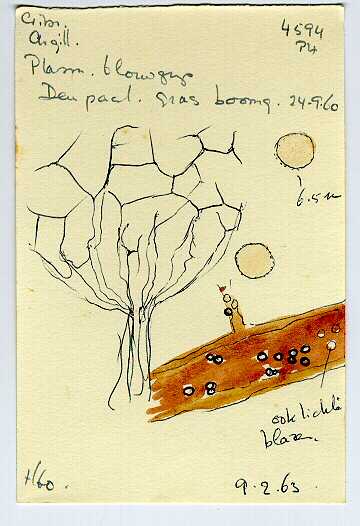 Cribr.
Argill.
4594
P4
Plasm. blauwgrijs
Den pad. gras boomg. 24-9.60
6.5 u
ook lichte
blazen.
H60.
9.2.63